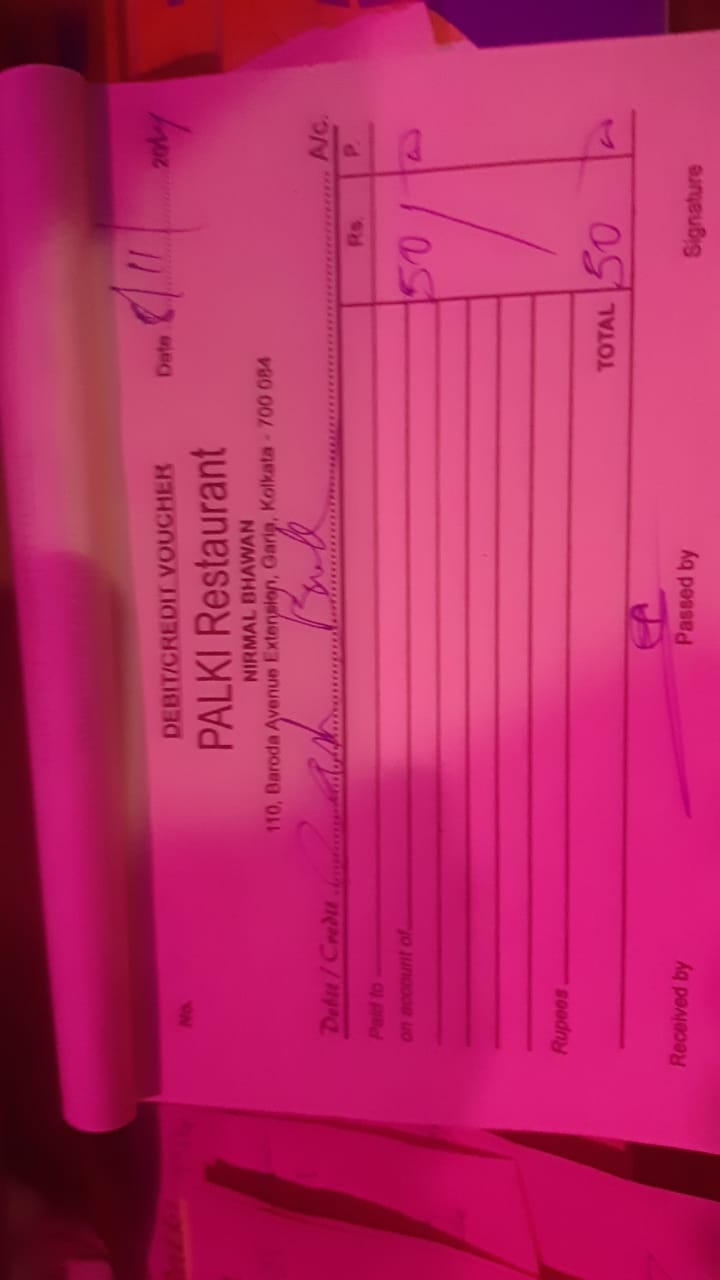 DEBIT/CREDIT VOUCHER
No. Date 8/11/ 20
PALKI Restaurant
NIRMAL BHAWAN
110, Baroda Avenue Extension, Garia, Kolkata - 700 084
Debit / Credit A/c.
Rs. P.
Paid to
on account of 50/
Rupees
TOTAL 50
Received by Passed by Signature